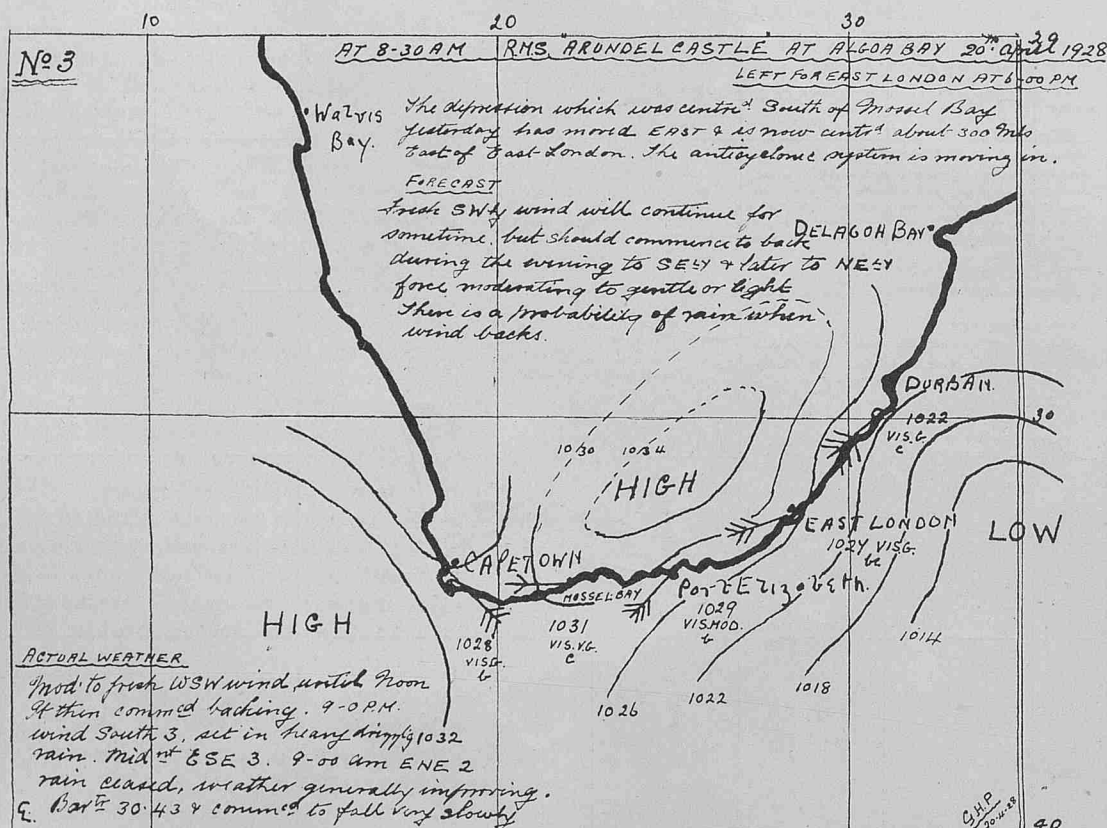 10 20 30
No 3
AT 8-30 AM RMS "ARUNDEL CASTLE" AT ALGOA BAY 20th April 1928
39
LEFT FOR EAST LONDON AT 6-00 PM
The depression which was centrd South of Mossel Bay
yesterday has moved EAST & is now centrd about 300 mls
East of East London. The anticyclonic system is moving in.
Walvis
Bay.
FORECAST
Fresh SWly wind will continue for
sometime, but should commence to back
during the evening to SELY & later to NELY
force moderating to gentle or light
There is a probability of rain when
wind backs.
DELAGOH BAY
DURBAN.
1022
VIS.G.
C
30
1030 1034
HIGH
EAST LONDON
1024 VISG.
bc
LOW
CAPETOWN
MOSSEL BAY
Port Elizabeth.
1029
VIS.MOD.
b
HIGH
1028
VISG.
b
1031
VIS.V.G.
C
1014
1018
1022
1026
1032
ACTUAL WEATHER
Mod. to fresh WSW wind until Noon
It then commcd backing. 9-0 P.M.
wind South 3, set in heavy
rain. Midnt ESE 3. 9-00 am ENE 2
rain ceased, weather generally improving.
Bartr 30.43 & commcd to fall very slowly
G.H.P
20-4-28
40